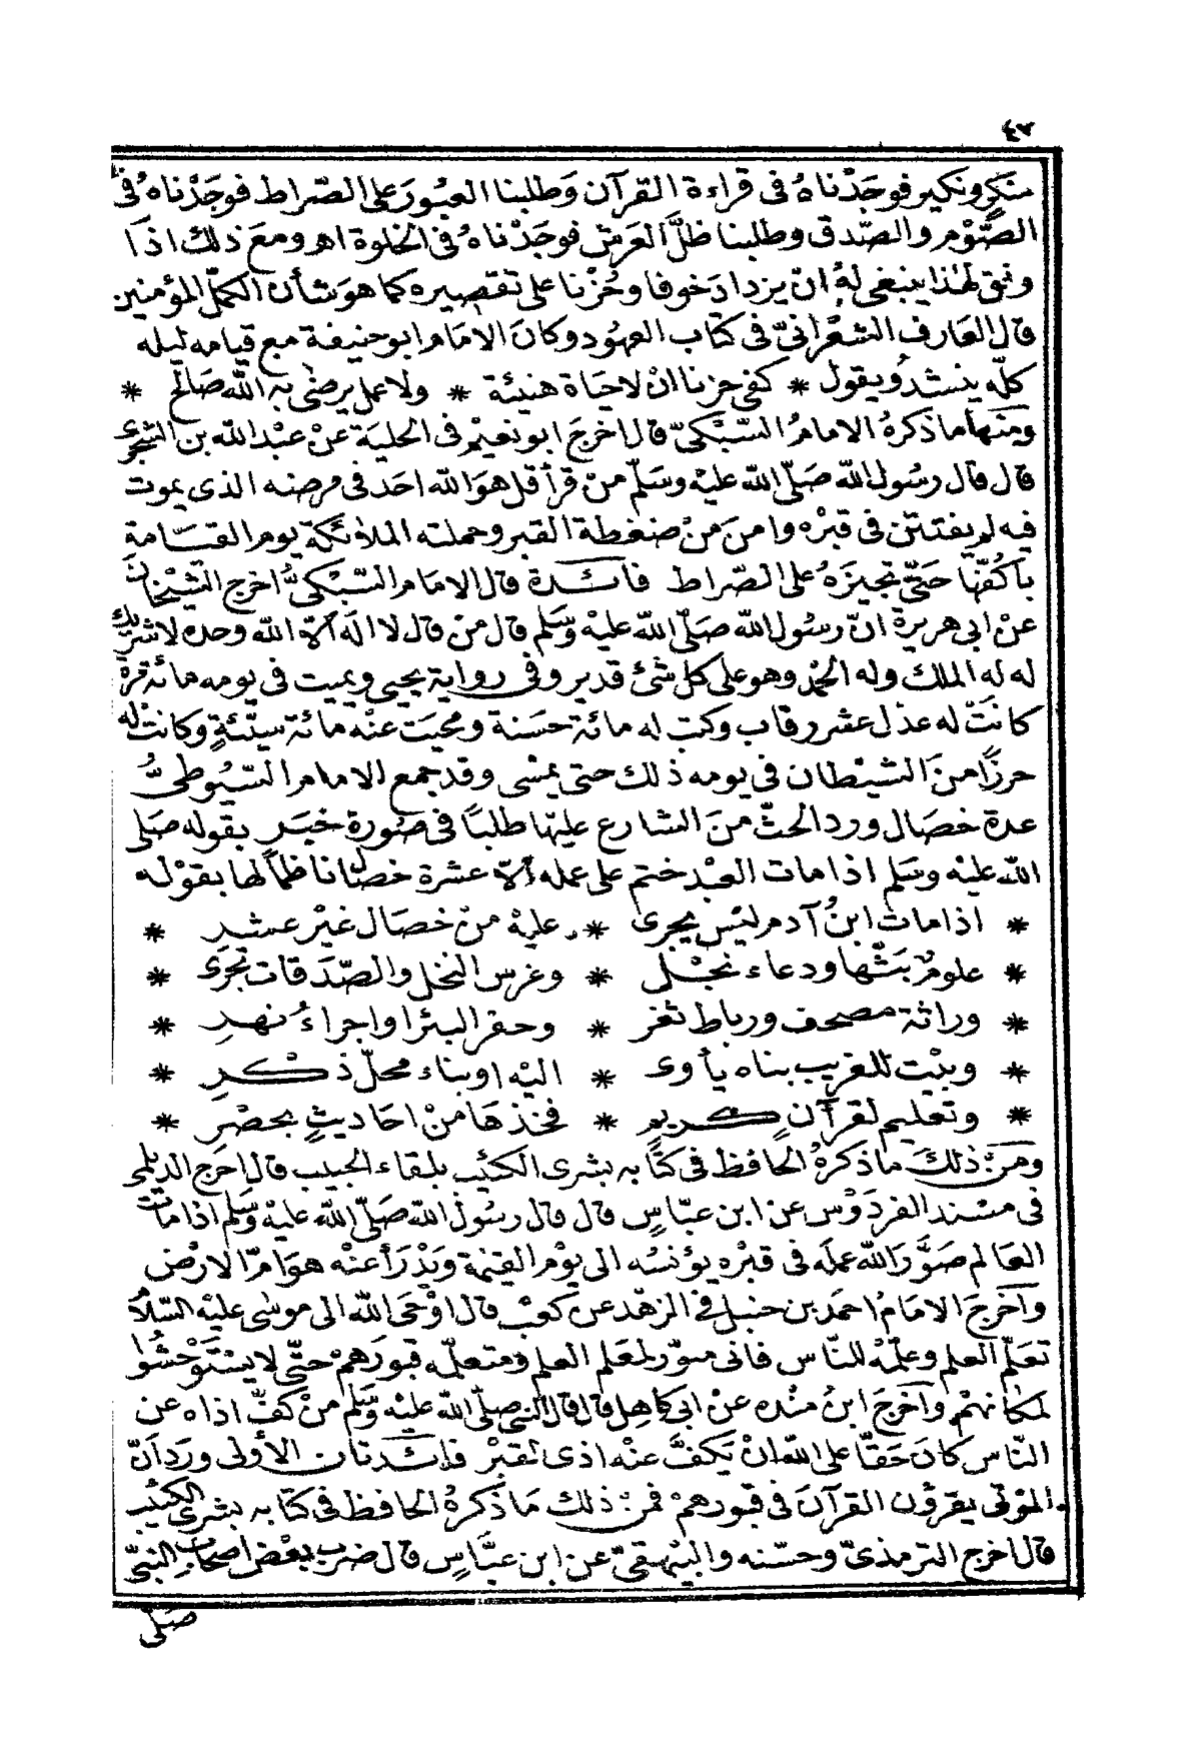 ٤٧
منكر ونكير فوجدناه في قراءة القرآن وطلبنا العبور على الصراط فوجدناه في
الصوم والصدق وطلبنا ظل العرش فوجدناه في الخلوة اهـ ومع ذلك اذا
وفق لهذا ينبغي له ان يزداد خوفا وحزنا على تقصيره كما هو شأن الكمل المؤمنين
قال العارف الشعراني في كتاب العهود وكان الامام ابو حنيفة مع قيامه ليله
كله ينشد ويقول * كفى حزنا ان لا حياة هنيئة * ولا عمل يرضى به الله صالح *
ومنها ما ذكره الامام السبكي قال اخرج ابو نعيم في الحلية عن عبد الله بن الشخير
قال قال رسول الله صلى الله عليه وسلم من قرأ قل هو الله احد في مرضه الذي يموت
فيه لم يفتتن في قبره وامن من ضغطة القبر وحملته الملائكة يوم القيامة
باكفها حتى تجيزه على الصراط فائدة قال الامام السبكي اخرج الشيخان
عن ابي هريرة ان رسول الله صلى الله عليه وسلم قال من قال لا اله الا الله وحده لا شريك
له له الملك وله الحمد وهو على كل شئ قدير وفي رواية يحيي ويميت في يومه مائة مرة
كانت له عدل عشر رقاب وكتب له مائة حسنة ومحيت عنه مائة سيئة وكانت له
حرزا من الشيطان في يومه ذلك حتى يمسي وقد جمع الامام السيوطي
عدة خصال ورد الحث من الشارع عليها طلبا في صورة خبر بقوله صلى
الله عليه وسلم اذا مات العبد ختم على عمله الا عشرة خصال ناظما لها بقوله
* اذا مات ابن آدم ليس يجري * عليه من خصال غير عشر *
* علوم بثها ودعاء نجل * وغرس النخل والصدقات تجري *
* وراثة مصحف ورباط ثغر * وحفر البئر او اجراء نهر *
* وبيت للغريب بناه يأوي * اليه او بناء محل ذكر *
* وتعليم لقرآن كريم * فخذها من احاديث بحصر *
ومن ذلك ما ذكره الحافظ في كتابه بشرى الكئيب بلقاء الحبيب قال اخرج الديلمي
في مسند الفردوس عن ابن عباس قال قال رسول الله صلى الله عليه وسلم اذا مات
العالم صور الله عمله في قبره يؤنسه الى يوم القيمة ويدرأ عنه هوام الارض
واخرج الامام احمد بن حنبل في الزهد عن كعب قال اوحى الله الى موسى عليه السلام
تعلم العلم وعلمه للناس فاني منور لمعلم العلم ومتعلمه قبورهم حتى لا يستوحشوا
لمكانهم واخرج ابن منده عن ابي كاهل قال قال النبي صلى الله عليه وسلم من كف اذاه عن
الناس كان حقا على الله ان يكف عنه اذى القبر فائدتان الأولى ورد ان
الموتى يقرؤن القرآن في قبورهم فمن ذلك ما ذكره الحافظ في كتابه بشرى الكئيب
قال اخرج الترمذي وحسنه والبيهقي عن ابن عباس قال ضرب بعض اصحاب النبي
صلى